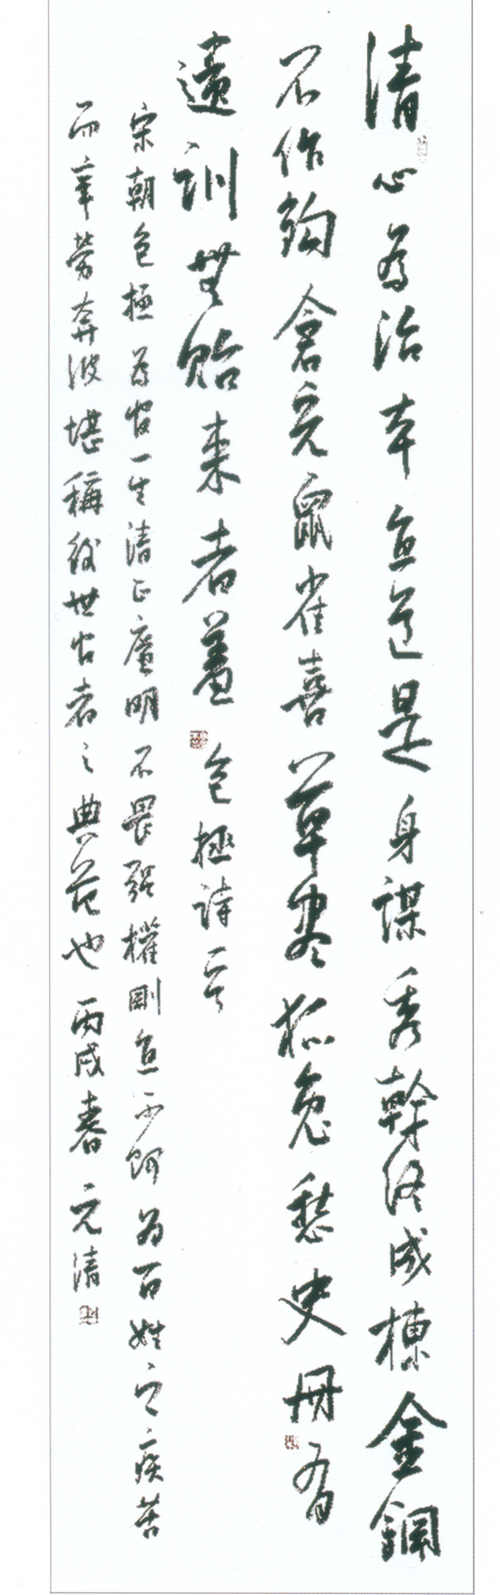 清心為治本直道是身謀秀幹終成棟金鋼
不作鉤倉充鼠雀喜草盡狐兔愁史冊有
遺訓無貽來者羞 包拯詩一首
宋朝包拯為官一生清正廉明不畏強權剛直不阿為百姓之疾苦
而辛勞奔波堪稱後世官者之典范也 丙戌春 元清